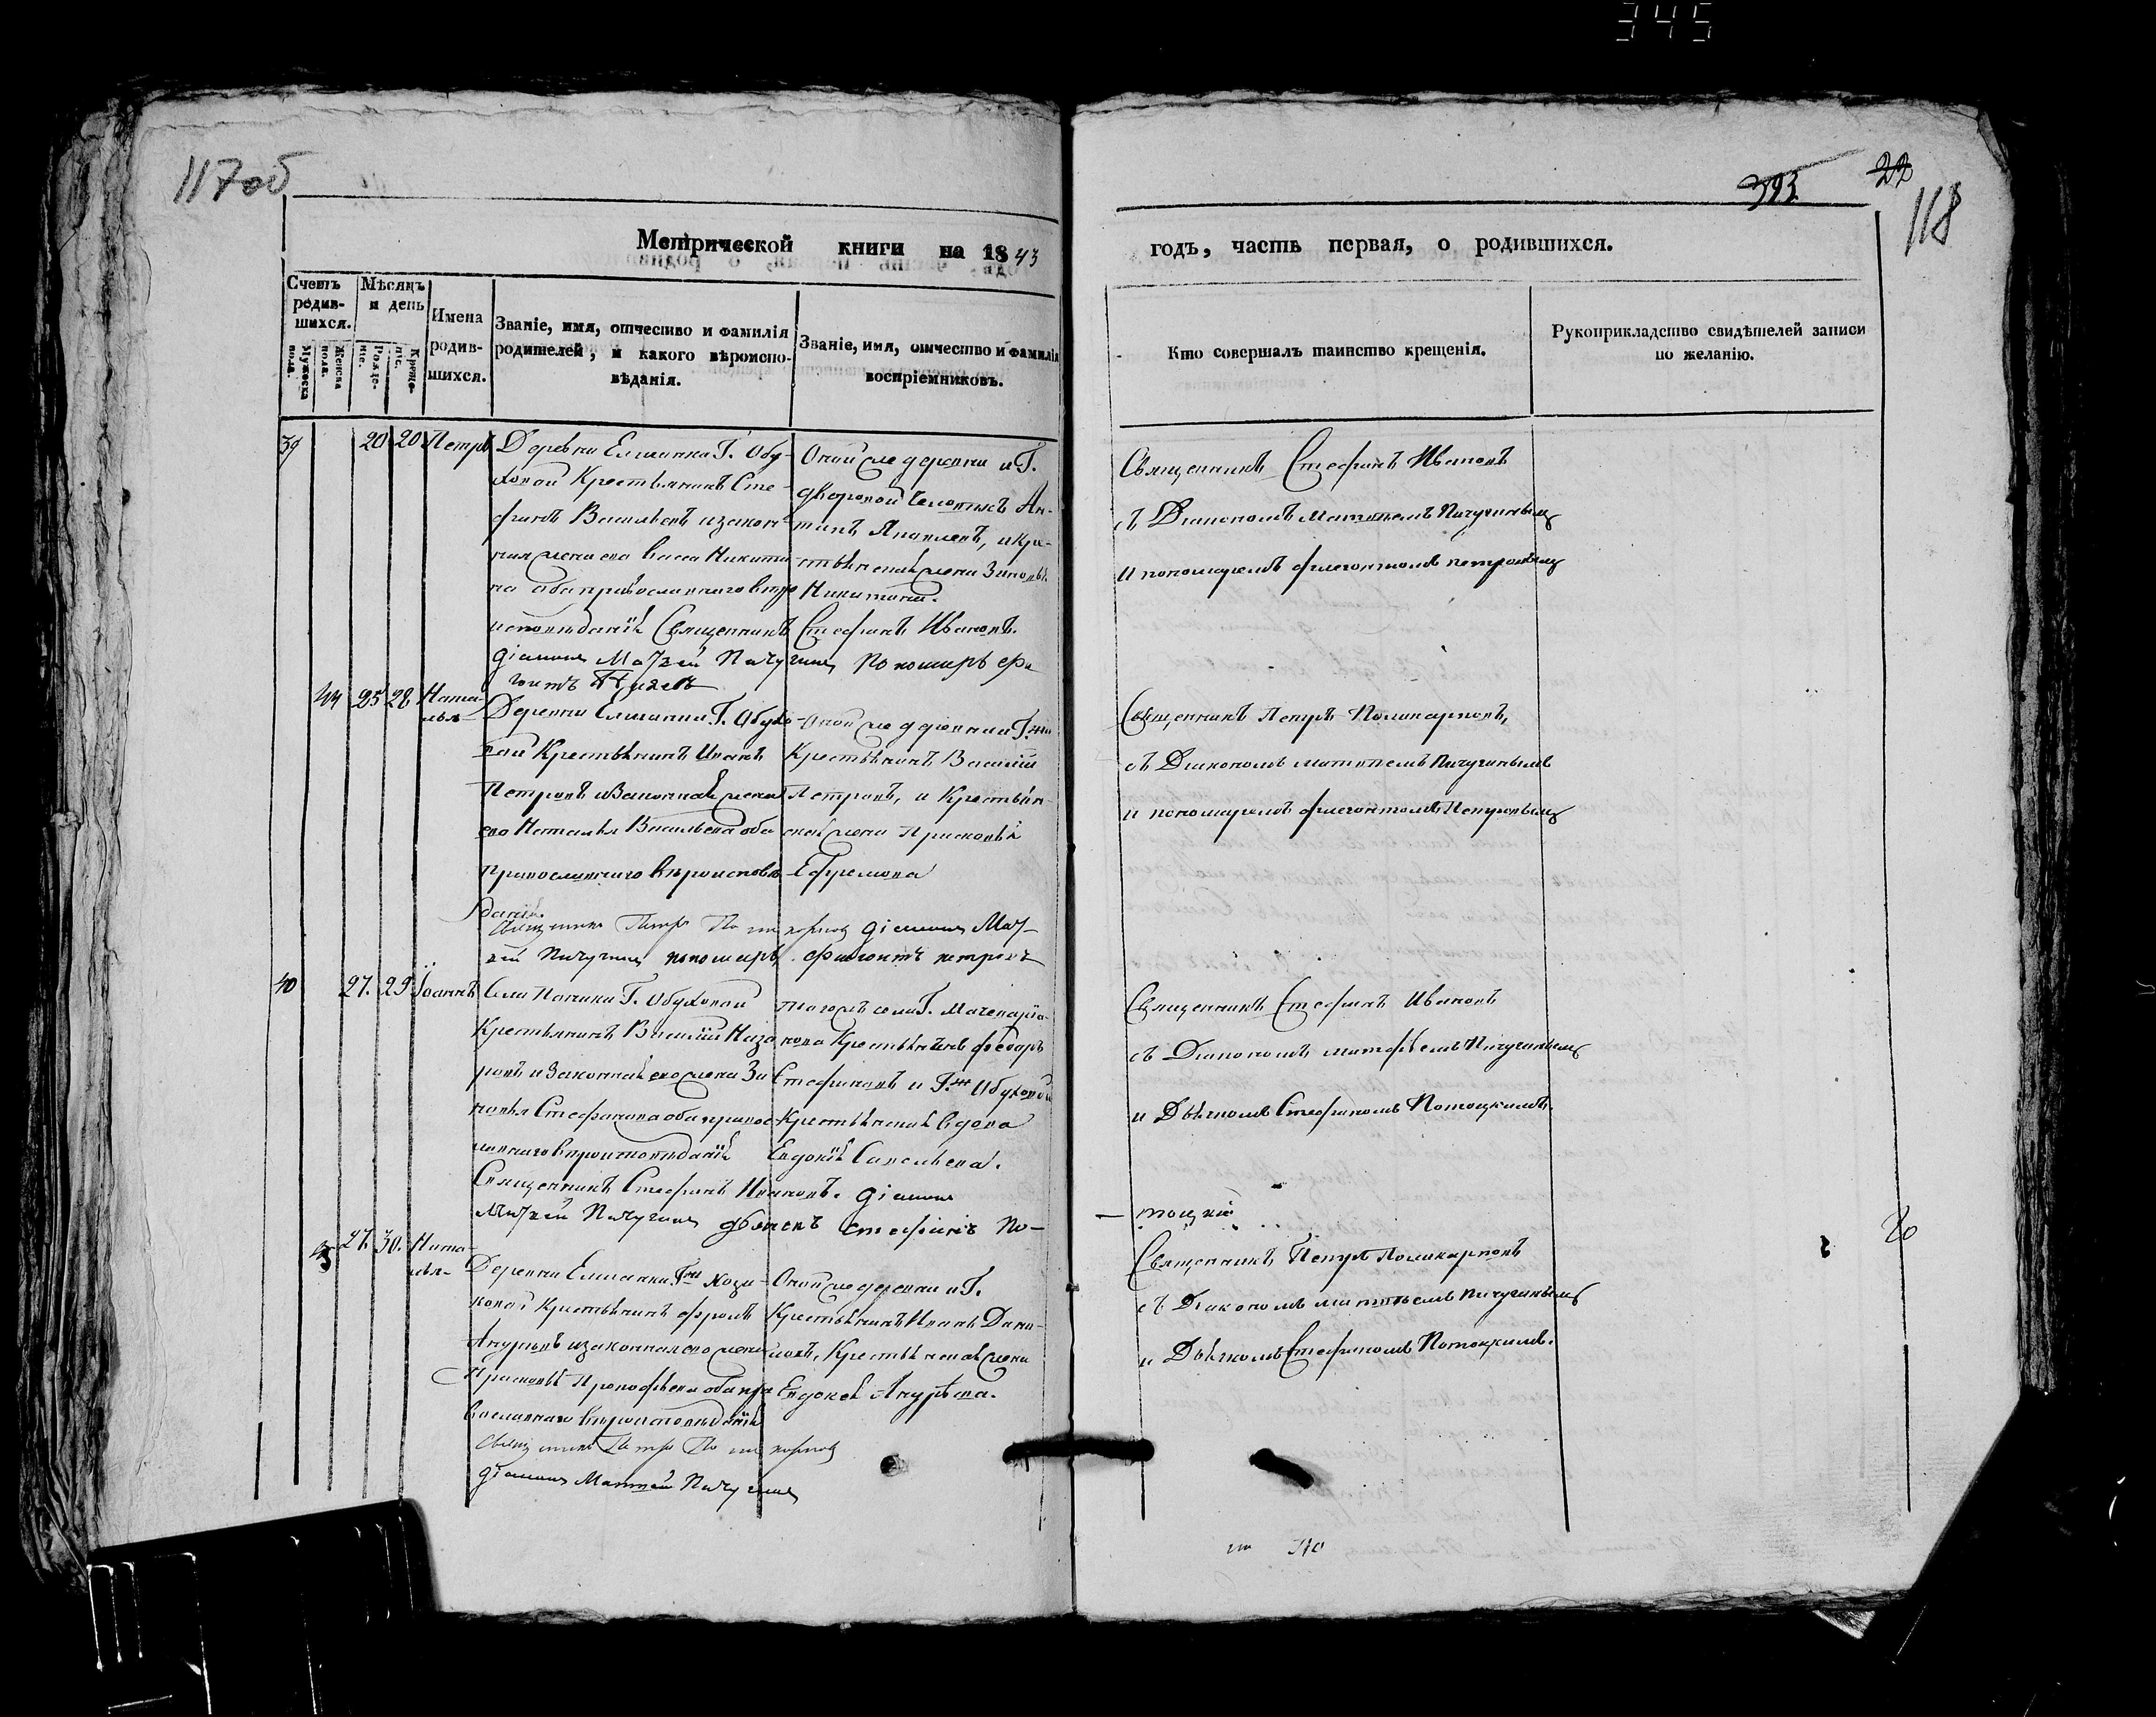 345
117об
393
22
118
Метрической книги на 1843
годъ, часть первая, о родившихся.
Счетъ родив-
шихся.
Мужеска пола.
Женска пола.
Мѣсяцъ и день
Рожде-
нiе.
Креще-
нiе.
Имена
родив-
шихся.
Званіе, имя, отчество и фамилія
родителей, и какого вѣроиспо-
вѣданія.
Званіе, имя, отчество и фамилія
воспріемниковъ.
Кто совершалъ таинство крещенія.
Рукоприкладство свидѣтелей записи
по желанію.
39 20 20 Петръ
Деревни Елшанки Г. Обу-
ховой Крестьянинъ Сте-
фанъ Васильевъ и закон-
ная жена его Васса Никити-
на оба православнаго вѣро
исповѣданія Священникъ Стефанъ Ивановъ.
діаконъ Матѳей Пичугинъ Пономарь Фле
гонтъ
Оной же деревни и Г.
дворовой человекъ Ан-
типъ Яковлевъ, и кре-
стьянская жена Зиновья
Никитина.
Священникъ Стефанъ Ивановъ
съ Діакономъ Матвеемъ Пичугинымъ
и пономаремъ Флегонтомъ Петровымъ
44 25 28 Ната-
лья
Деревни Елшанки Г. Обухо-
вой Крестьянинъ Иванъ
Петровъ и Законная жена
его Наталья Васильева оба
православнаго вѣроисповѣ-
данія.
Оной же деревни и Г.жи
Крестьянинъ Василій
Петровъ, и Крестьян-
ская жена Прасковья
Ефремова
Священникъ Петръ Поликарповъ діаконъ Мат-
вей Пичугинъ пономарь Флегонтъ петровъ
Священникъ Петръ Поликарповъ,
съ Діакономъ матвеемъ Пичугинымъ
и пономаремъ Флегонтомъ Петровымъ
40 27. 29 Іоаннъ
Села Г. Обуховой
Крестьянинъ Василій Наза
ровъ и Законная его жена Зи
новья Стефанова оба правос-
лавнаго вѣроисповѣданія
Священникъ Стефанъ Ивановъ. діаконъ
Матвей Пичугинъ дьячекъ стефанъ По-
тоцкій
тогожъ села Г.
Крестьянинъ Федоръ
Стефановъ и Г.жи Обуховой
Крестьянская вдова
Евдокія Савельева.
Священникъ Стефанъ Ивановъ
съ Діакономъ матфеемъ Пичугинымъ
и Дьячкомъ Стефаномъ Потоцкимъ.
45 27. 30. Ната-
лья
Деревни Елшанки Г.жи
Крестьянинъ Фролъ
и законная его жена
Прасковья Прокофьева оба пра
вославнаго вѣроисповѣданія
Священникъ Петръ Поликарповъ
діаконъ Матвей Пичугинъ
Оной же деревни и Г.
Крестьянинъ Иванъ Дани-
ловъ, Крестьянская жена
Евдокея
Священникъ Петръ Поликарповъ
съ Діакономъ матвеемъ Пичугинымъ
и Дьячкомъ Стефаномъ Потоцкимъ.